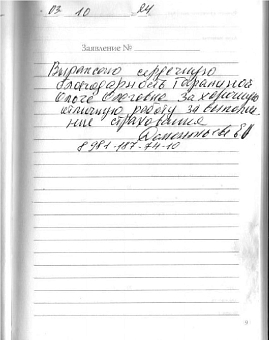 03 10 24
Заявление №
Выражаю сердечную
благодарность Гараниной
Ольге Олеговне за хорошую
отличную работу за выполне
ние страхования
8 981-187-74-10